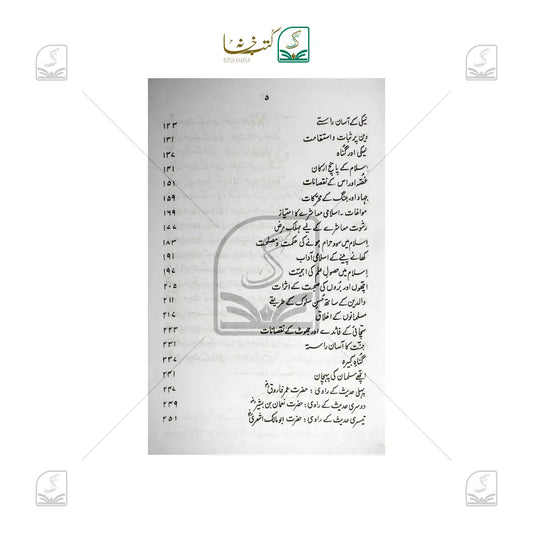 کتب خانہ
۵
نیکی کے آسان راستے ۱۲۳
دین پر ثبات و استقامت ۱۳۱
نیکی اور گناہ ۱۳۷
اسلام کے پانچ ارکان ۱۴۱
غصّہ اور اس کے نقصانات ۱۵۱
جہاد اور جنگ کے محرکات ۱۵۹
مواخات - اسلامی معاشرے کا امتیاز ۱۶۹
رشوت معاشرے کے لیے مہلک مرض ۱۷۷
اسلام میں سود حرام ہونے کی حکمت و مصلحت ۱۸۳
کھانے پینے کے اسلامی آداب ۱۹۱
اسلام میں حصولِ علم کی اہمیت ۱۹۷
اچھوں اور بُروں کی صحبت کے اثرات ۲۰۵
والدین کے ساتھ حُسنِ سلوک کے طریقے ۲۱۱
مسلمانوں کے اخلاق ۲۱۷
سچائی کے فائدے اور جھوٹ کے نقصانات ۲۲۳
جنّت کا آسان راستہ ۲۳۱
گناہِ کبیرہ ۲۳۷
اچھے مسلمان کی پہچان ۲۴۱
پہلی حدیث کے راوی : حضرت عمر فاروقؓ ۲۴۷
دوسری حدیث کے راوی : حضرت نعمان بن بشیرؓ ۲۴۹
تیسری حدیث کے راوی : حضرت ابو مالک اشعریؓ ۲۵۱